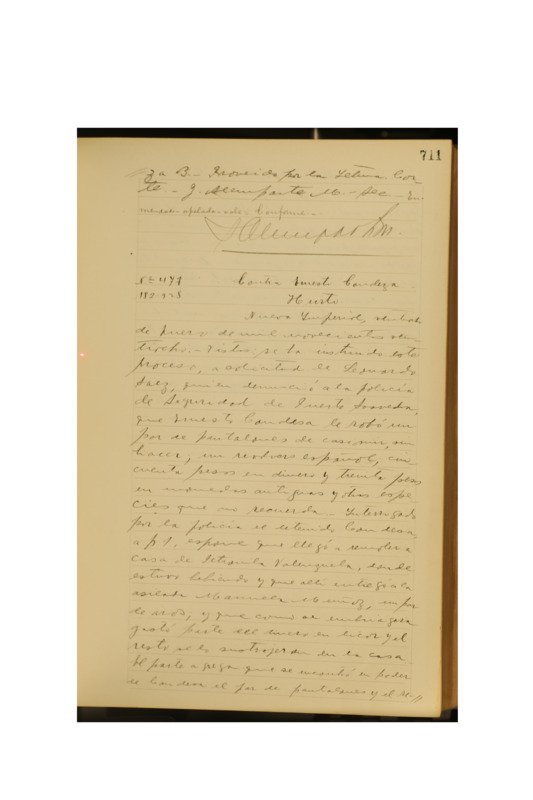 711
za B.- Proveido por la Iltma. Cor
te - J. Alemparte M. - Sec - En
mendado - apelada - vale - Conforme -
JAlemparteM.
No 4177
Contra Ernesto Candeza -
Hurto
Nueva Imperial, veintiuno
de Enero de mil novecientos vein
tiocho - Vistos: se ha instruido este
proceso, a solicitud de Leonardo
Saez, quien denunció a la policía
de Seguridad de Puerto Saavedra,
que Ernesto Candesa le robó un
par de pantalones de casimir, sin
hacer, un revolver español, cin
cuenta pesos en dinero y treinta pesos
en monedas antiguas y otras espe
cies que no recuerda - Interrogado
por la policía el detenido Candesa,
a f 1, expone que llegó a remoler a
casa de Petronila Valenzuela, donde
estuvo bebiendo y que allí entregó a la
asilada Manuela Muñoz, un par
de aros, y que como se embriagara
gastó parte del dinero en licor y el
resto se lo sustrajeron en la casa.
El parte agrega que se encontró en poder
de Candesa el par de pantalones y el re-//